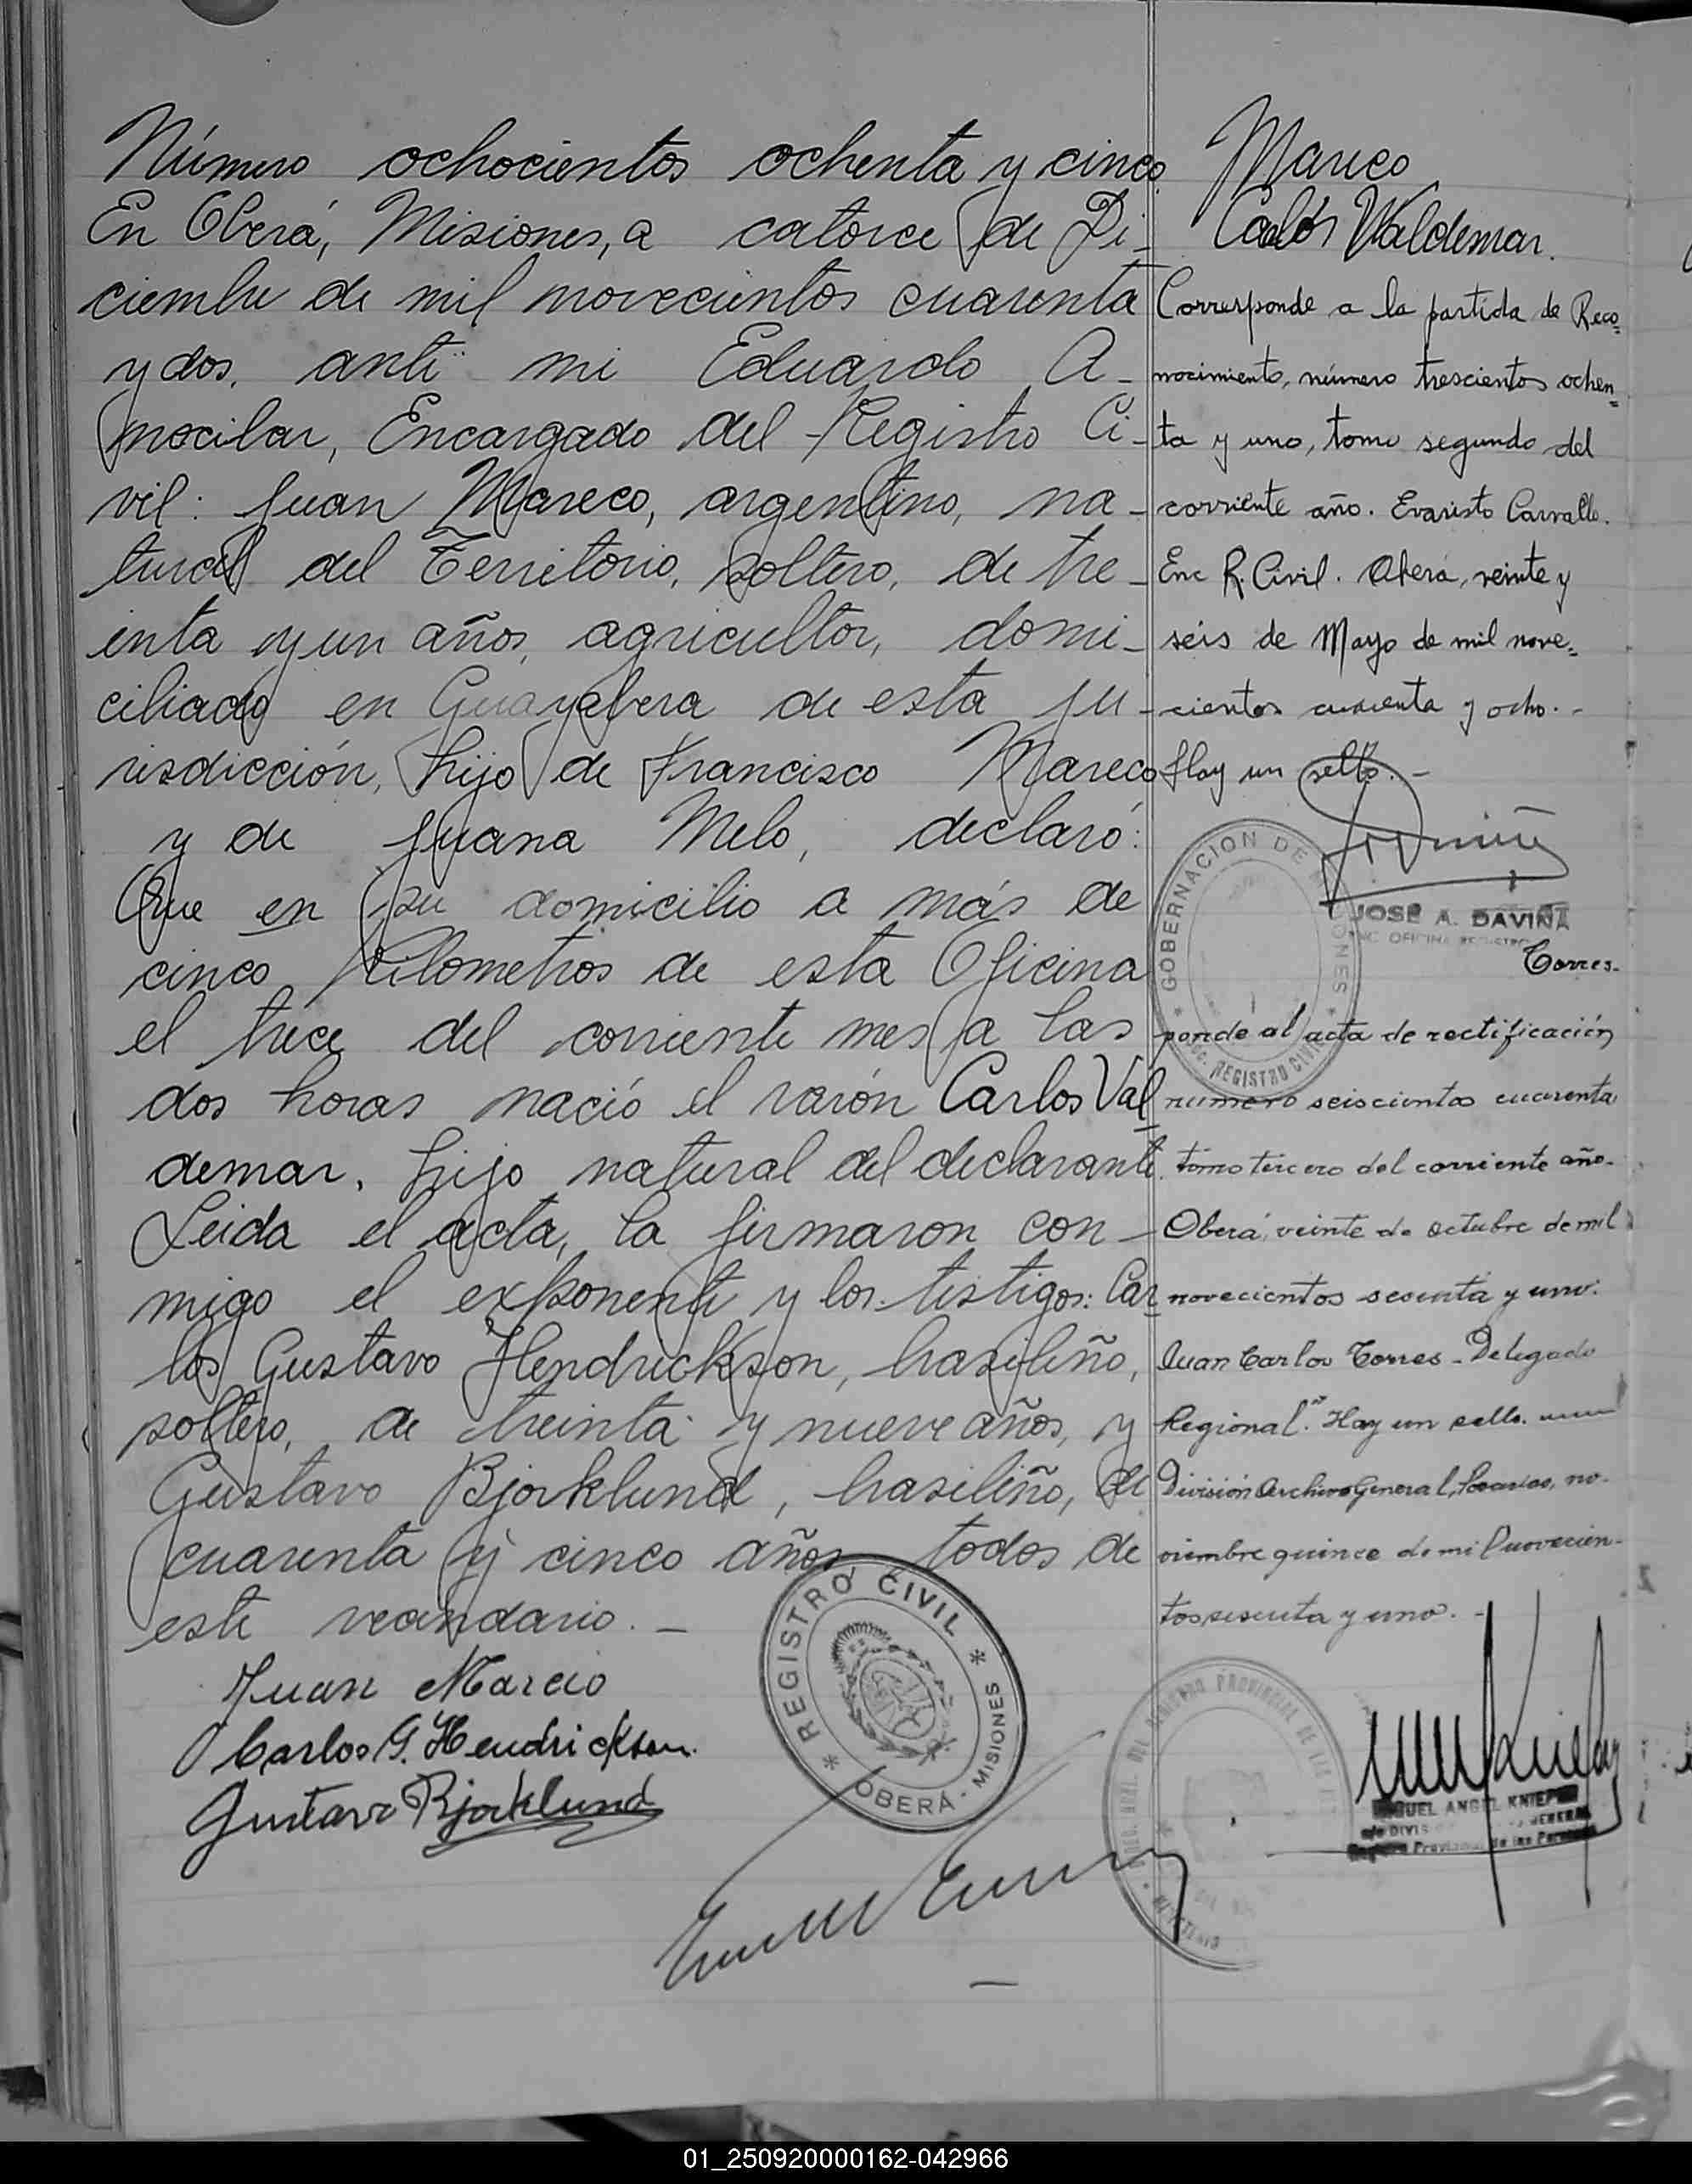 Número ochocientos ochenta y cinco
En Oberá, Misiones, a catorce de Di-
ciembre de mil novecientos cuarenta
y dos, ante mi Eduardo A-
mocilar, Encargado del Registro Ci-
vil: Juan Mareco, argentino, na-
tural del Territorio, soltero, de tre-
inta y un años, agricultor, domi-
ciliado en Guayabera de esta ju-
risdicción, hijo de Francisco Mareco
y de Juana Melo, declaró:
Que en su domicilio a más de
cinco kilometros de esta Oficina
el trece del corriente mes a las
dos horas nació el varón Carlos Val
demar, hijo natural del declarante.
Leida el acta, la firmaron con-
migo el exponente y los testigos: Car
los Gustavo Hendrickson, brasileño,
soltero, de treinta y nueve años, y
Gustavo Bjorklund, brasileño, de
cuarenta y cinco años, todos de
este vecindario.-
Juan Marecio
Carlos G. Hendrickson.
Gustavo Bjorklund
* REGISTRO CIVIL *
OBERÁ - MISIONES
Mareco
Carlos Waldemar.
Corresponde a la partida de Reco=
nocimiento, número trescientos ochen=
ta y uno, tomo segundo del
corriente año. Evaristo Carvallo.
Enc R. Civil. Oberá, veinte y
seis de Mayo de mil nove=
cientos cuarenta y ocho.-
Hay un sello.-
GOBERNACION DE MISIONES
REGISTRO CIVIL
JOSÉ A. DAVIÑA
ENC. OFICINA REGISTRO
Corres-
ponde al acta de rectificación
número seiscientos cuarenta
tomo tercero del corriente año-
Oberá, veinte de octubre de mil
novecientos sesenta y uno.
Juan Carlos Torres - Delegado
Regional". Hay un sello.
División Archivo General, Posadas, no-
viembre quince de mil novecien-
tos sesenta y uno.-
PROVINCIAL DE LAS
MIGUEL ANGEL KNIEPP
a/c DIVIS GENERAL
Registro Provincial de las Personas
01_250920000162-042966